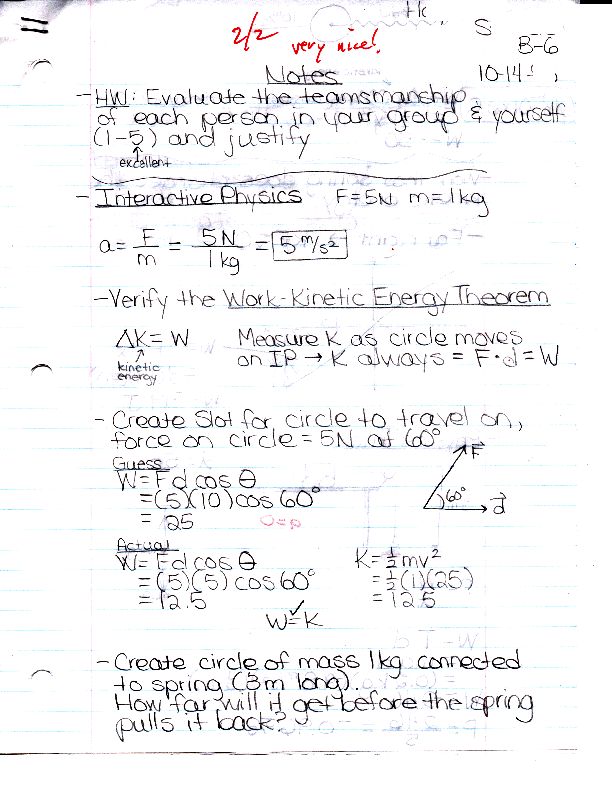 2/2 very nice!
S
B-6
Notes
10-14
- HW: Evaluate the teamsmanship
of each person in your group & yourself
(1-5) and justify
excellent
- Interactive Physics F=5N m=1kg
a= F/m = 5N/1kg = 5 m/s²
- Verify the Work-Kinetic Energy Theorem
ΔK=W Measure K as circle moves
kinetic energy on IP → K always = F·d = W
- Create slot for circle to travel on,
force on circle = 5N at 60°
Guess
W=Fd cos θ
=(5)(10)cos 60°
= 25
F
60°
d
Actual
W=Fd cos θ K=½mv²
=(5)(5) cos 60° =½(1)(25)
=12.5 =12.5
W=K
- Create circle of mass 1kg connected
to spring (3m long).
How far will it get before the spring
pulls it back?